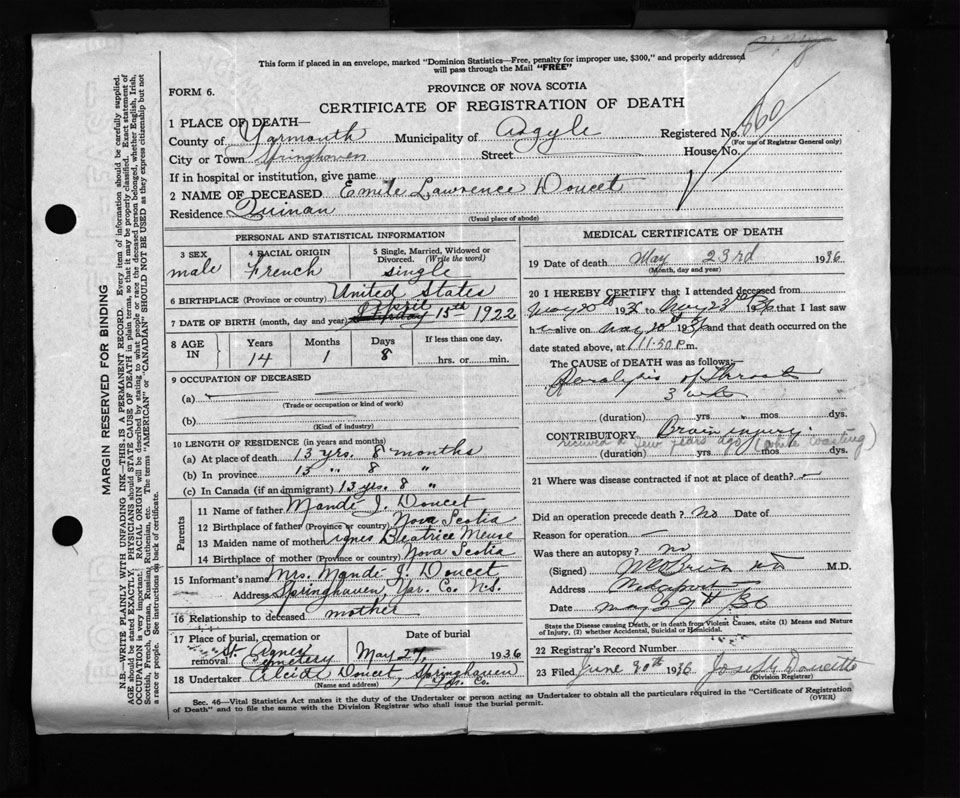 This form if placed in an envelope, marked "Dominion Statistics—Free, penalty for improper use, $300," and properly addressed
will pass through the Mail "FREE"
PROVINCE OF NOVA SCOTIA
FORM 6.
CERTIFICATE OF REGISTRATION OF DEATH
1 PLACE OF DEATH—
County of Yarmouth Municipality of Argyle Registered No. 660
(For use of Registrar General only)
City or Town Springhaven Street House No.
If in hospital or institution, give name
2 NAME OF DECEASED Emile Lawrence Doucet
Residence Quinan
(Usual place of abode)
PERSONAL AND STATISTICAL INFORMATION
3 SEX 4 RACIAL ORIGIN 5 Single, Married, Widowed or
Divorced. (Write the word)
male French single
6 BIRTHPLACE (Province or country) United States
April
7 DATE OF BIRTH (month, day and year) 15th 1922
8 AGE IN Years Months Days If less than one day,
14 1 8 hrs. or min.
9 OCCUPATION OF DECEASED
(a)
(Trade or occupation or kind of work)
(b)
(Kind of industry)
10 LENGTH OF RESIDENCE (in years and months)
(a) At place of death 13 yrs. 8 months
(b) In province 13 " 8 "
(c) In Canada (if an immigrant) 13 yrs. 8 "
Parents
11 Name of father Mandé J. Doucet
12 Birthplace of father (Province or country) Nova Scotia
13 Maiden name of mother Agnes Beatrice Meuse
14 Birthplace of mother (Province or country) Nova Scotia
15 Informant's name Mrs. Mandé J. Doucet
Address Springhaven, Yar. Co. N.S.
16 Relationship to deceased mother
17 Place of burial, cremation or
removal St. Agnes Cemetery
Date of burial
May 27, 1936
18 Undertaker Alcide Doucet, Springhaven
Yar. Co.
(Name and address)
MEDICAL CERTIFICATE OF DEATH
19 Date of death May 23rd 1936
(Month, day and year)
20 I HEREBY CERTIFY that I attended deceased from
May 20th 1936 to May 23rd 1936 that I last saw
h alive on May 20th 1936 and that death occurred on the
date stated above, at 11.50 P.m.
The CAUSE of DEATH was as follows:—
Paralysis of Throat
3 wks
(duration) yrs. mos. dys.
CONTRIBUTORY Brain injury.
received a few years ago (while coasting)
(duration) yrs. mos. dys.
21 Where was disease contracted if not at place of death?
Did an operation precede death? no Date of
Reason for operation
Was there an autopsy? no
(Signed) M.D.
Address
Date May 29th 36
State the Disease causing Death, or in death from Violent Causes, state (1) Means and Nature
of Injury, (2) whether Accidental, Suicidal or Homicidal.
22 Registrar's Record Number
23 Filed June 30th 1936 Joseph Doucette
(Division Registrar)
Sec. 46—Vital Statistics Act makes it the duty of the Undertaker or person acting as Undertaker to obtain all the particulars required in the "Certificate of Registration
of Death" and to file the same with the Division Registrar who shall issue the burial permit.
(OVER)
MARGIN RESERVED FOR BINDING
N.B.—WRITE PLAINLY WITH UNFADING INK—THIS IS A PERMANENT RECORD. Every item of information should be carefully supplied.
AGE should be stated EXACTLY. PHYSICIANS should STATE CAUSE OF DEATH in plain terms, so that it may be properly classified. Exact statement of
OCCUPATION is very important. RACIAL ORIGIN will be described by stating to what people or race the deceased person belonged, whether English, Irish,
Scottish, French, German, Russian, Ruthenian, etc. The terms "AMERICAN" or "CANADIAN" SHOULD NOT BE USED as they express citizenship but not
a race or people. See instructions on back of certificate.